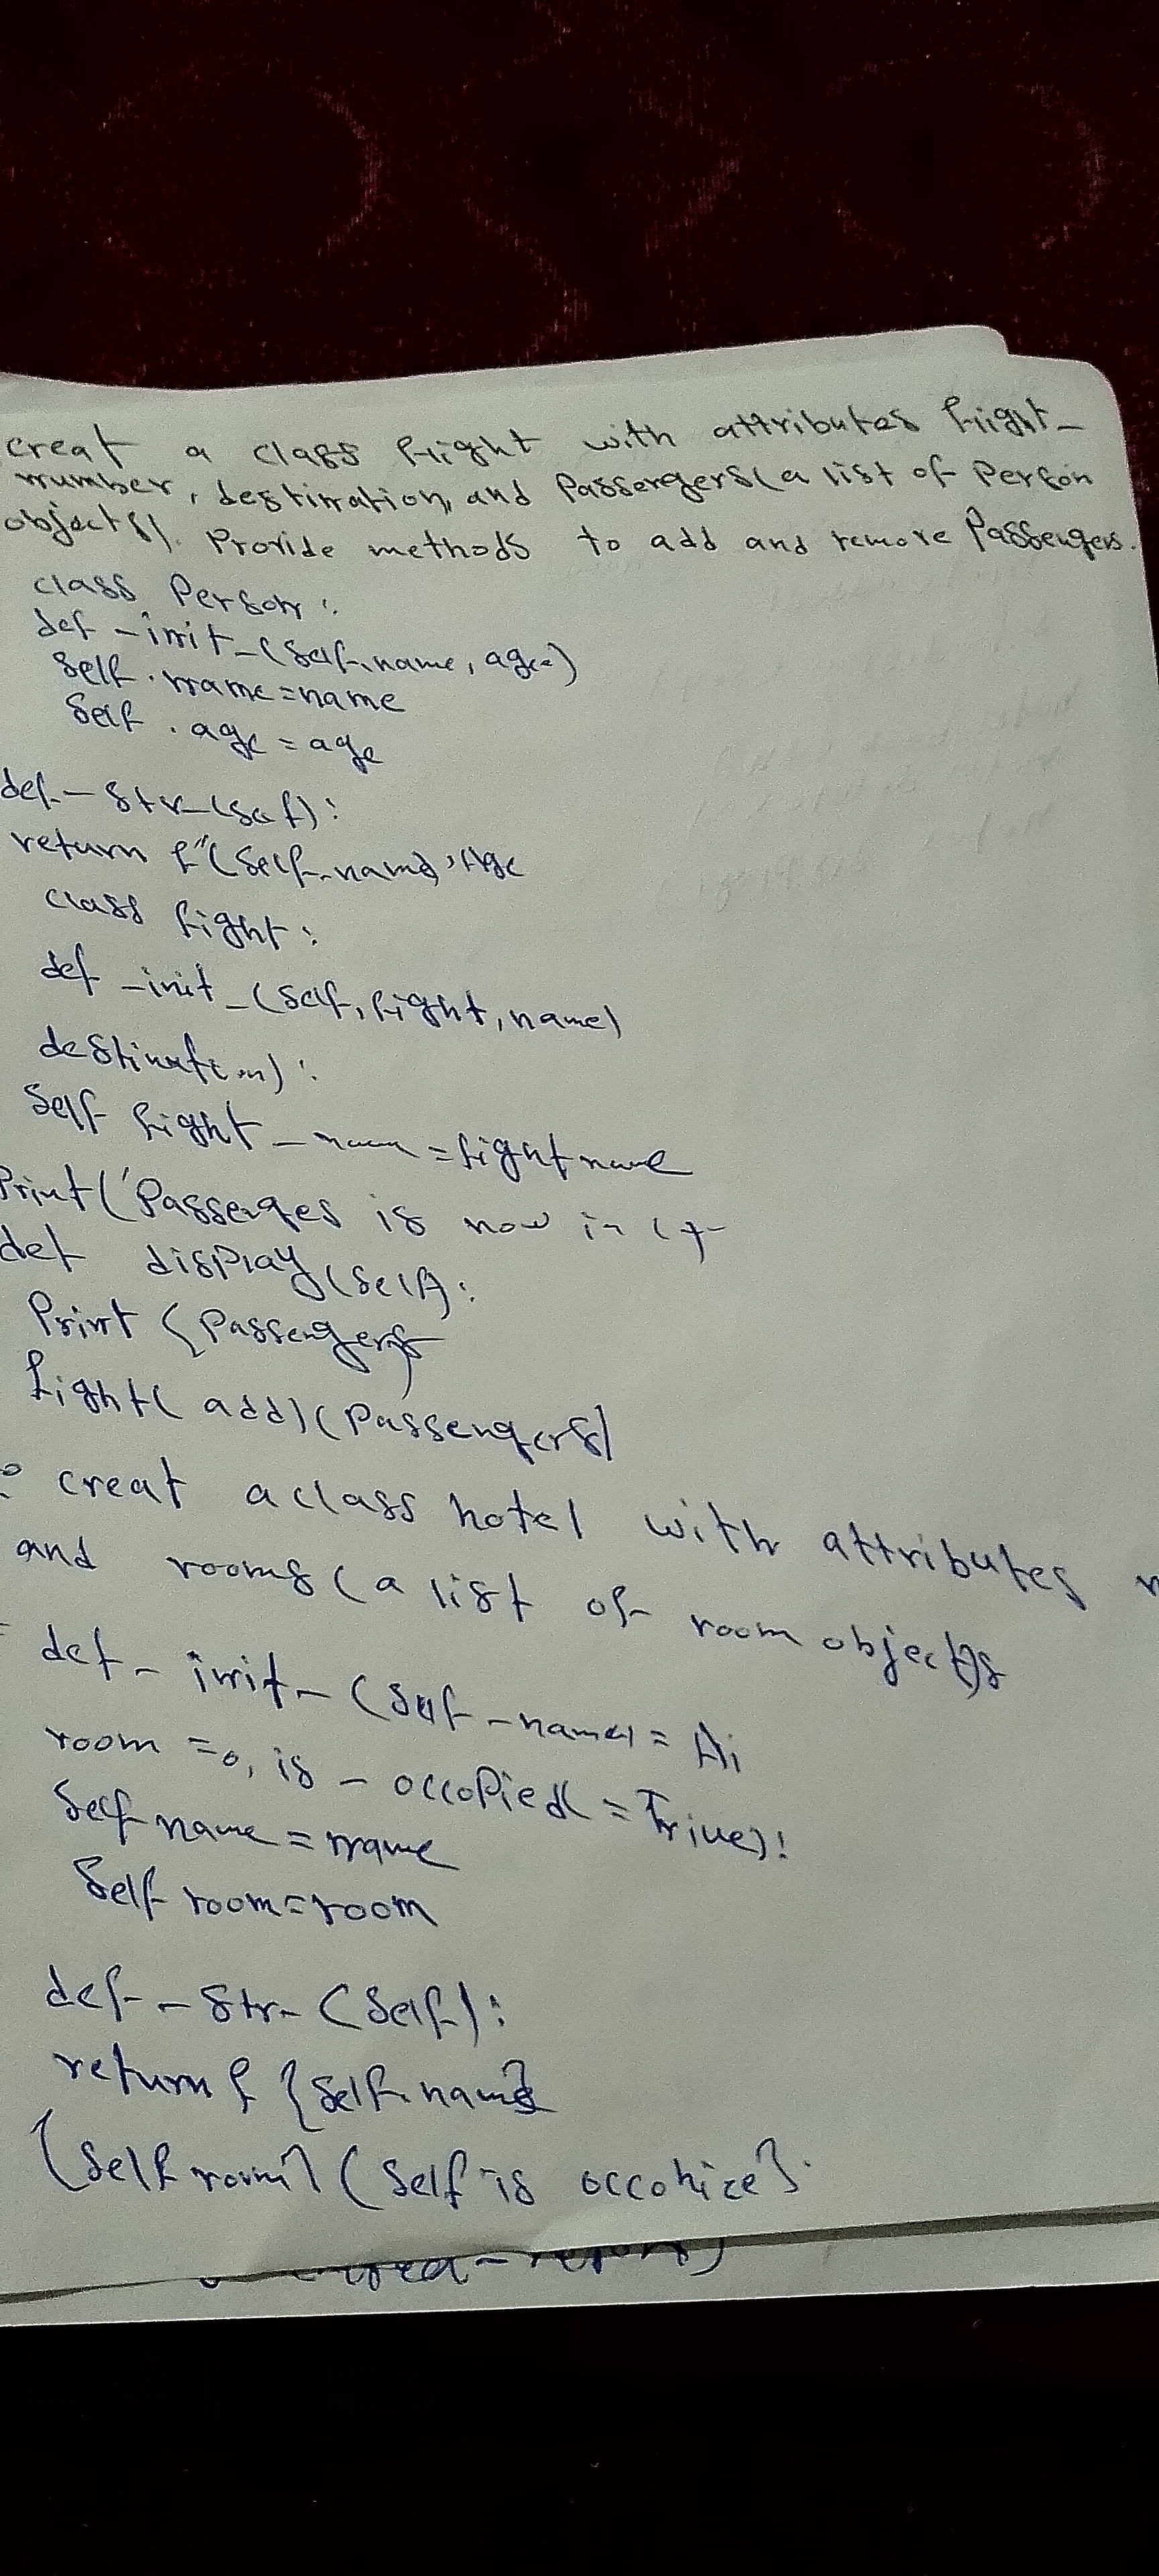 creat a class flight with attributes flight_
number, destination, and Passergers (a list of Person
objects). Provide methods to add and remove Passengers.
class Person:
def _init_(self, name, age)
self.name = name
self.age = age
def _str_(self):
return f"(self.name), Age
class flight:
def _init_(self, flight, name)
destination):
self flight_ = flight name
Print('Passenges is now in
def display(self):
Print { Passengers
flight( add)(Passengers)
creat a class hotel with attributes
and rooms (a list of room objects
def _ init_ (self _name) =
room = 0, is _ occopied =
self name = name
self room = room
def _ str_ (self):
return f {self.name}
{self room} (self is